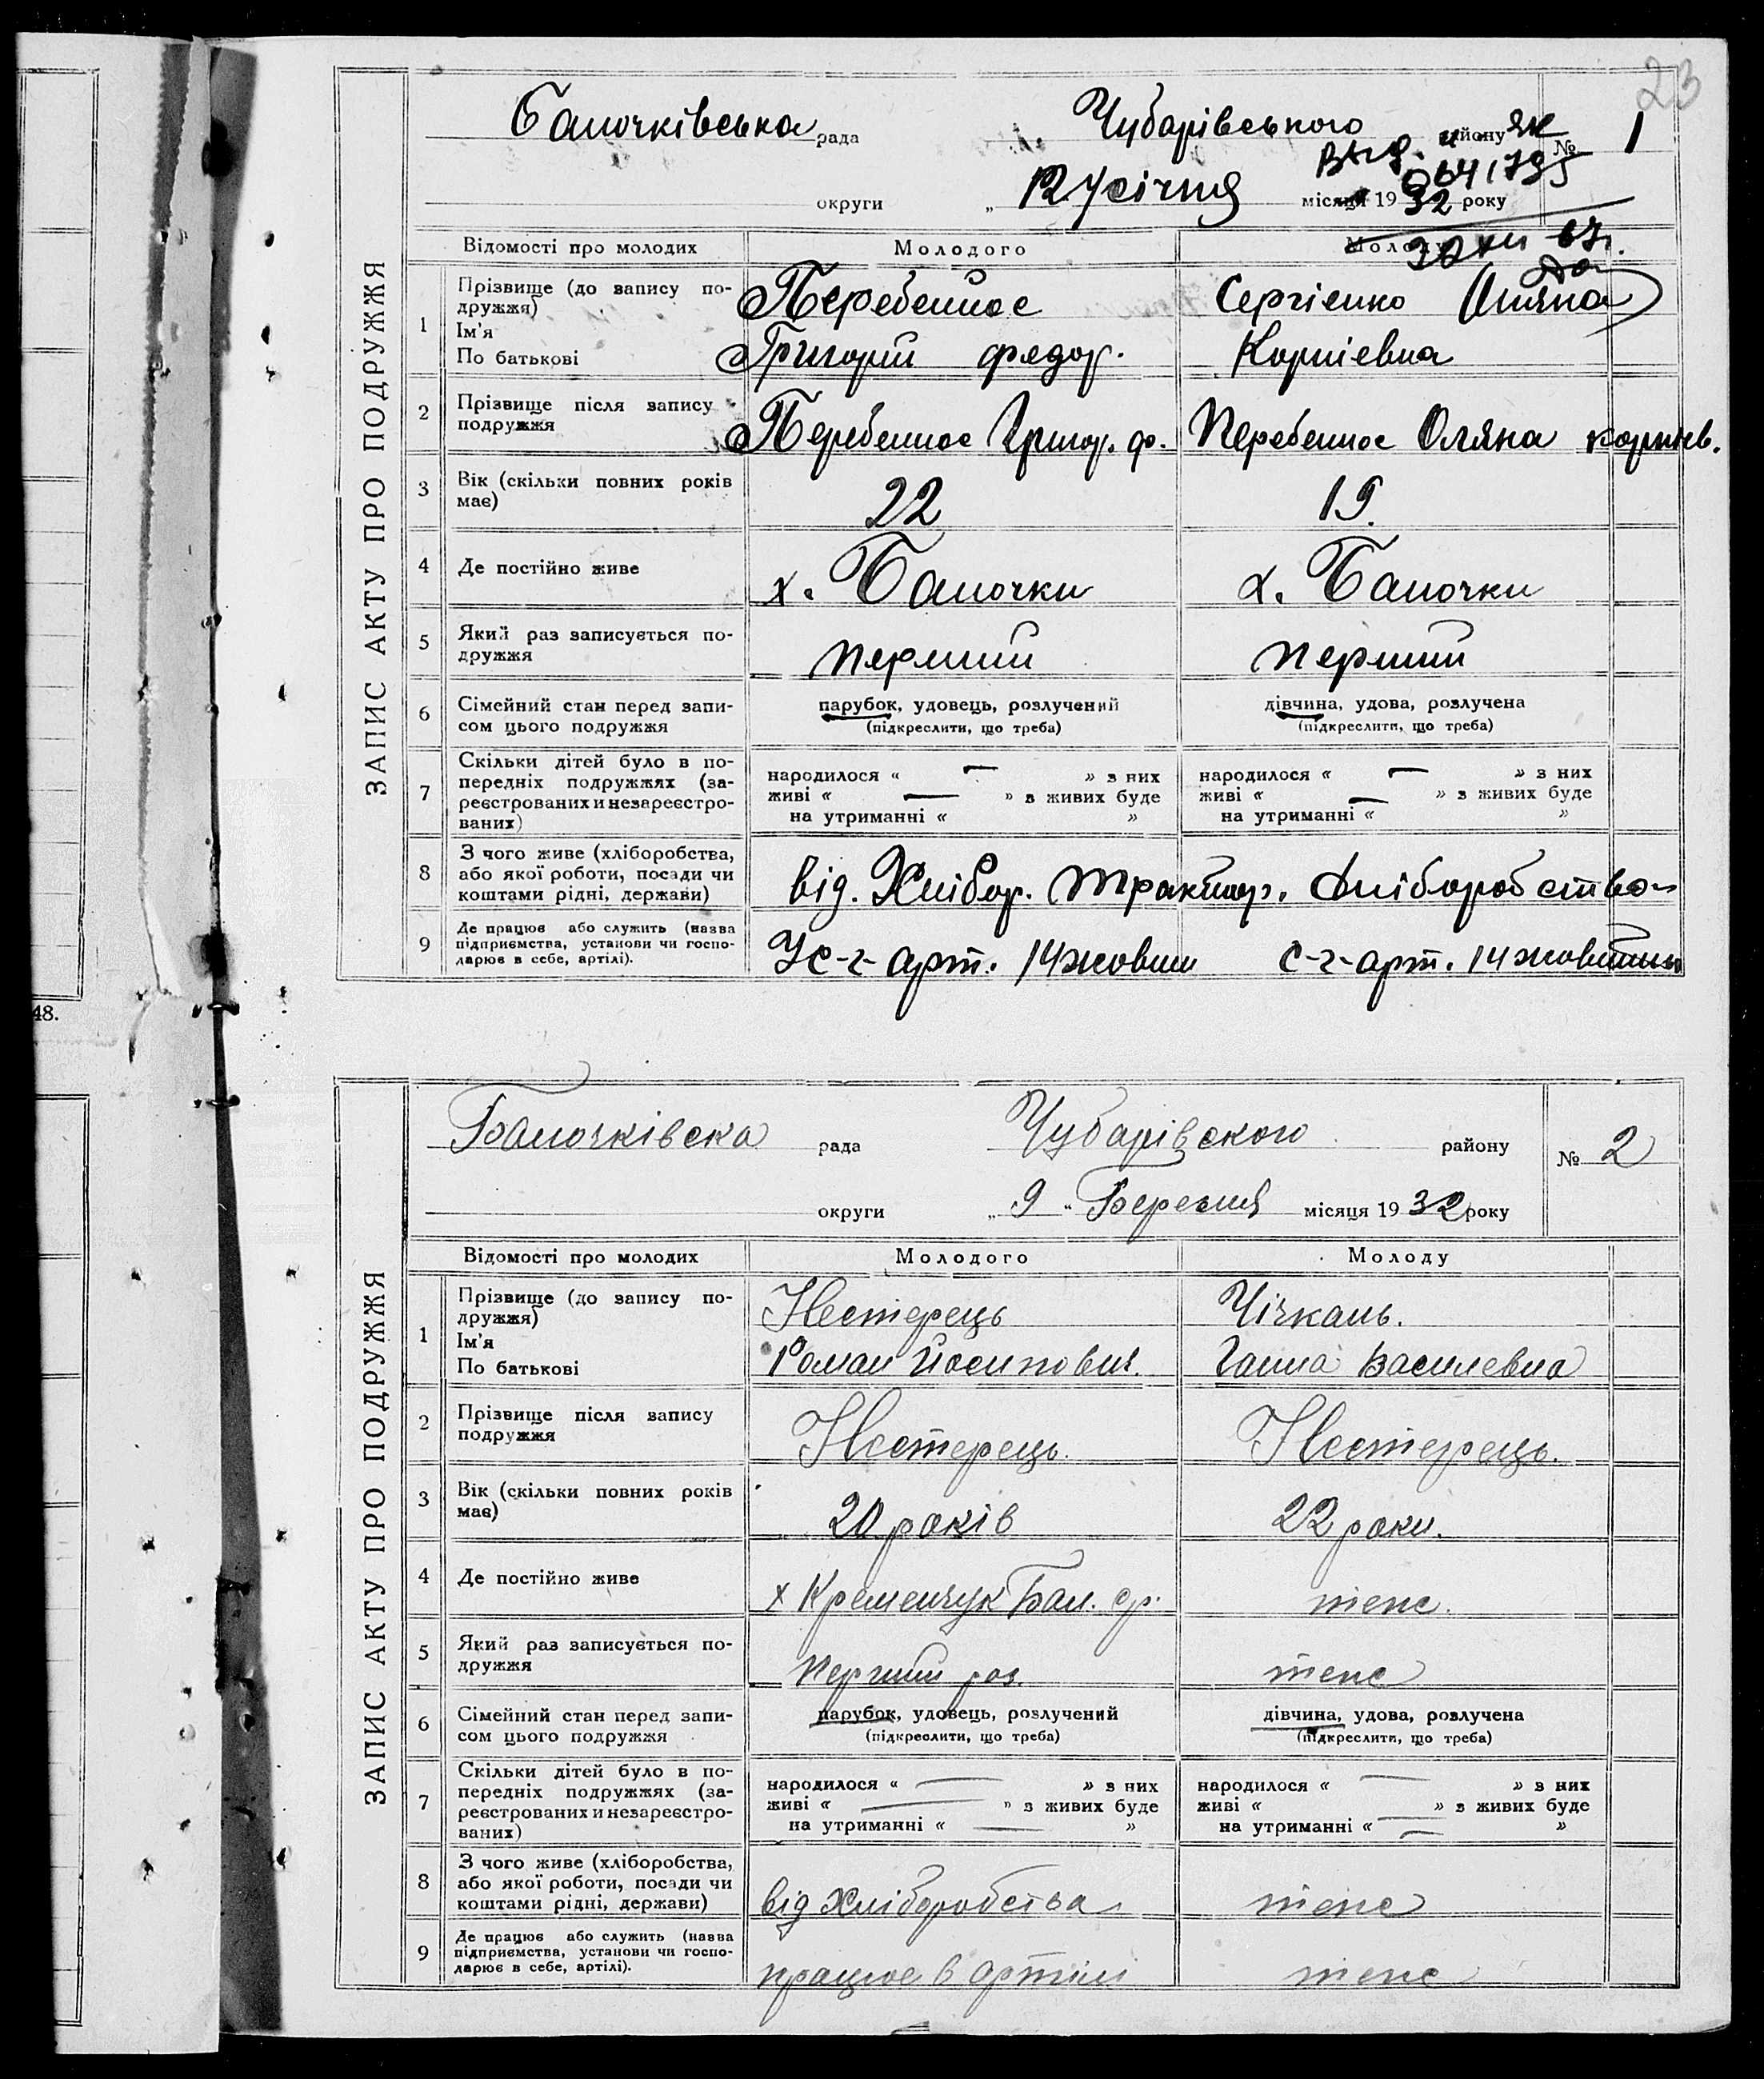 23
Балочківська рада Чубарівського району № 1
округи „ 12 " січня місяця 1932 року
064179
Відомості про молодих Молодого Молоду
ЗАПИС АКТУ ПРО ПОДРУЖЖЯ
1 Прізвище (до запису подружжя) Перебейнос Сергієнко Оляна
Ім'я
По батькові Григорій Федор. Корніевна
2 Прізвище після запису подружжя Перебейнос Григор. Ф. Перебейнос Оляна Корнієв.
3 Вік (скільки повних років має) 22 19.
4 Де постійно живе х. Балочки х. Балочки
5 Який раз записується подружжя перший перший
6 Сімейний стан перед записом цього подружжя парубок, удовець, розлучений дівчина, удова, розлучена
(підкреслити, що треба) (підкреслити, що треба)
7 Скільки дітей було в попередніх подружжях (зареєстрованих и незареєстрованих)
народилося « — » з них народилося « — » з них
живі « — » з живих буде живі « — » з живих буде
на утриманні « » на утриманні « »
8 З чого живе (хліборобства, або якої роботи, посади чи коштами рідні, держави) від. Хлібор. трактор. Хліборобство
9 Де працює або служить (назва підприємства, установи чи господарює в себе, артілі). У с-г-арт. 14 жовтн с-г-арт. 14 жовтня
48.
Балочківска рада Чубарівского району № 2
округи „ 9 " Березня місяця 1932 року
Відомості про молодих Молодого Молоду
ЗАПИС АКТУ ПРО ПОДРУЖЖЯ
1 Прізвище (до запису подружжя) Нестерець Чічкань.
Ім'я
По батькові Роман Йосипович. Ганна Василевна
2 Прізвище після запису подружжя Нестерець. Нестерець.
3 Вік (скільки повних років має) 20 років 22 роки.
4 Де постійно живе х Кременчук Бал. ср. теже.
5 Який раз записується подружжя Перший раз. теже
6 Сімейний стан перед записом цього подружжя парубок, удовець, розлучений дівчина, удова, розлучена
(підкреслити, що треба) (підкреслити, що треба)
7 Скільки дітей було в попередніх подружжях (зареєстрованих и незареєстрованих)
народилося « — » з них народилося « — » з них
живі « — » з живих буде живі « » з живих буде
на утриманні « — » на утриманні « — »
8 З чого живе (хліборобства, або якої роботи, посади чи коштами рідні, держави) від Хліборобства теже
9 Де працює або служить (назва підприємства, установи чи господарює в себе, артілі). працює в артілі теже